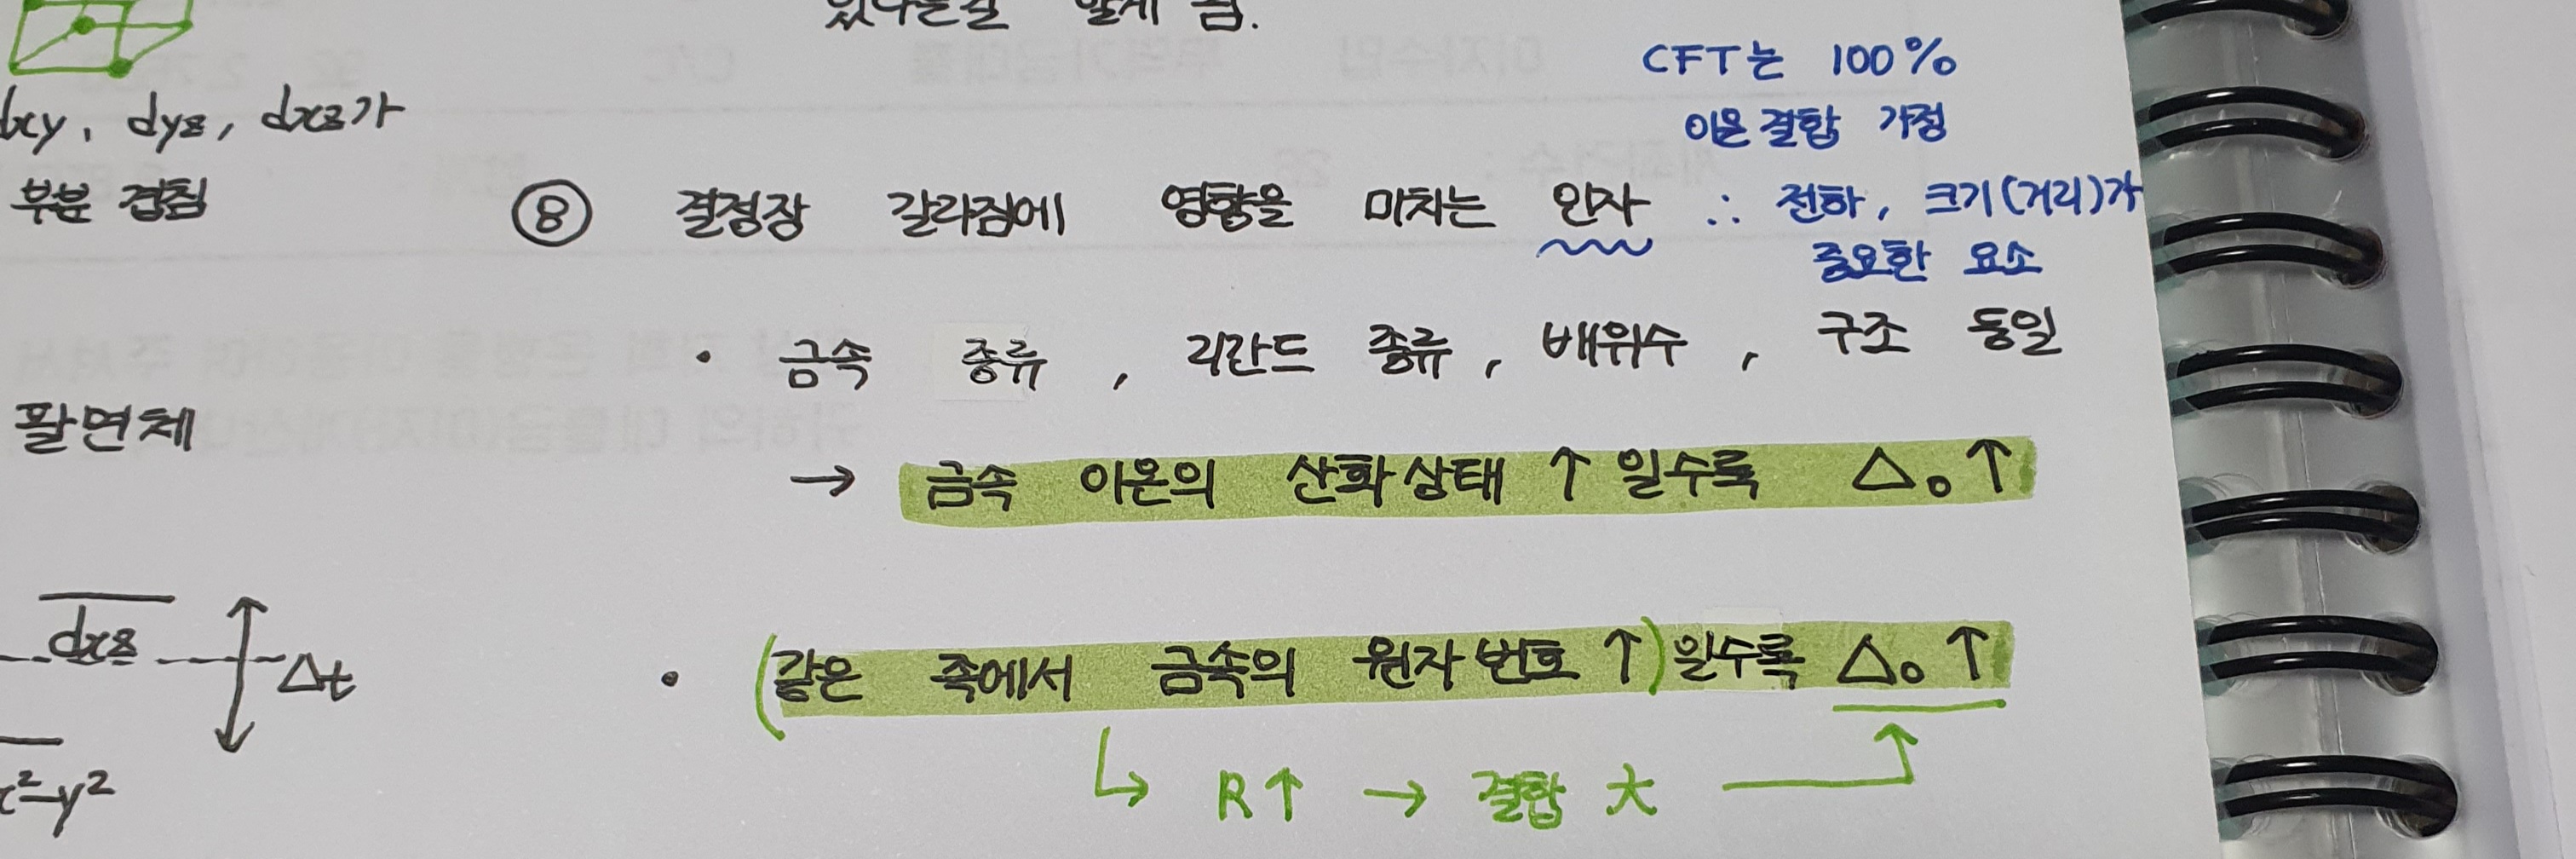 있다는걸 알게 됨.
CFT는 100%
이온결합 가정
dxy, dyz, dxz가
부분 겹침
⑧ 결정장 갈라짐에 영향을 미치는 인자 ∴ 전하, 크기(거리)가
중요한 요소
• 금속 종류, 리간드 종류, 배위수, 구조 동일
팔면체
→ 금속 이온의 산화상태 ↑ 일수록 △o ↑
dxz
△t
• (같은 족에서 금속의 원자번호 ↑) 일수록 △o ↑
↳ R↑ → 결합 大
x²-y²